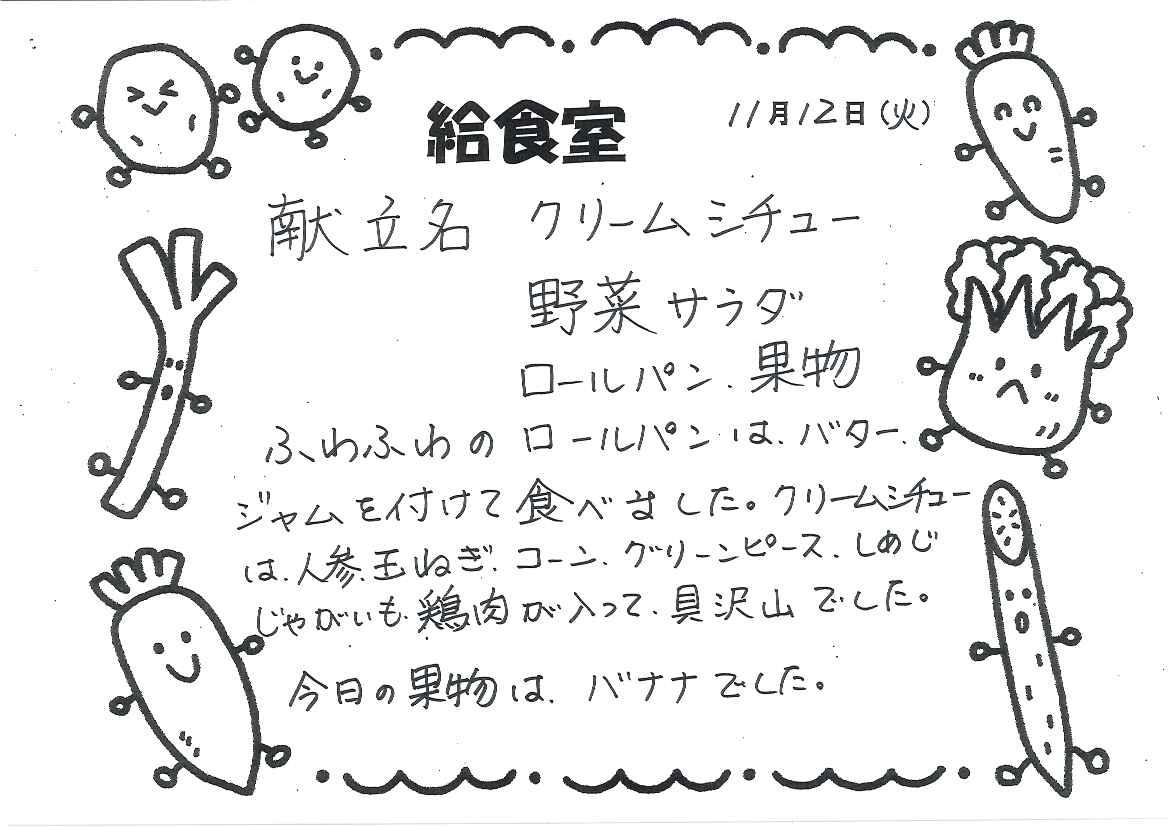 給食室
11月12日(火)
献立名 クリームシチュー
野菜サラダ
ロールパン、果物
ふわふわのロールパンは、バター、
ジャムを付けて食べました。クリームシチュー
は、人参、玉ねぎ、コーン、グリーンピース、しめじ
じゃがいも、鶏肉が入って、具沢山でした。
今日の果物は、バナナでした。